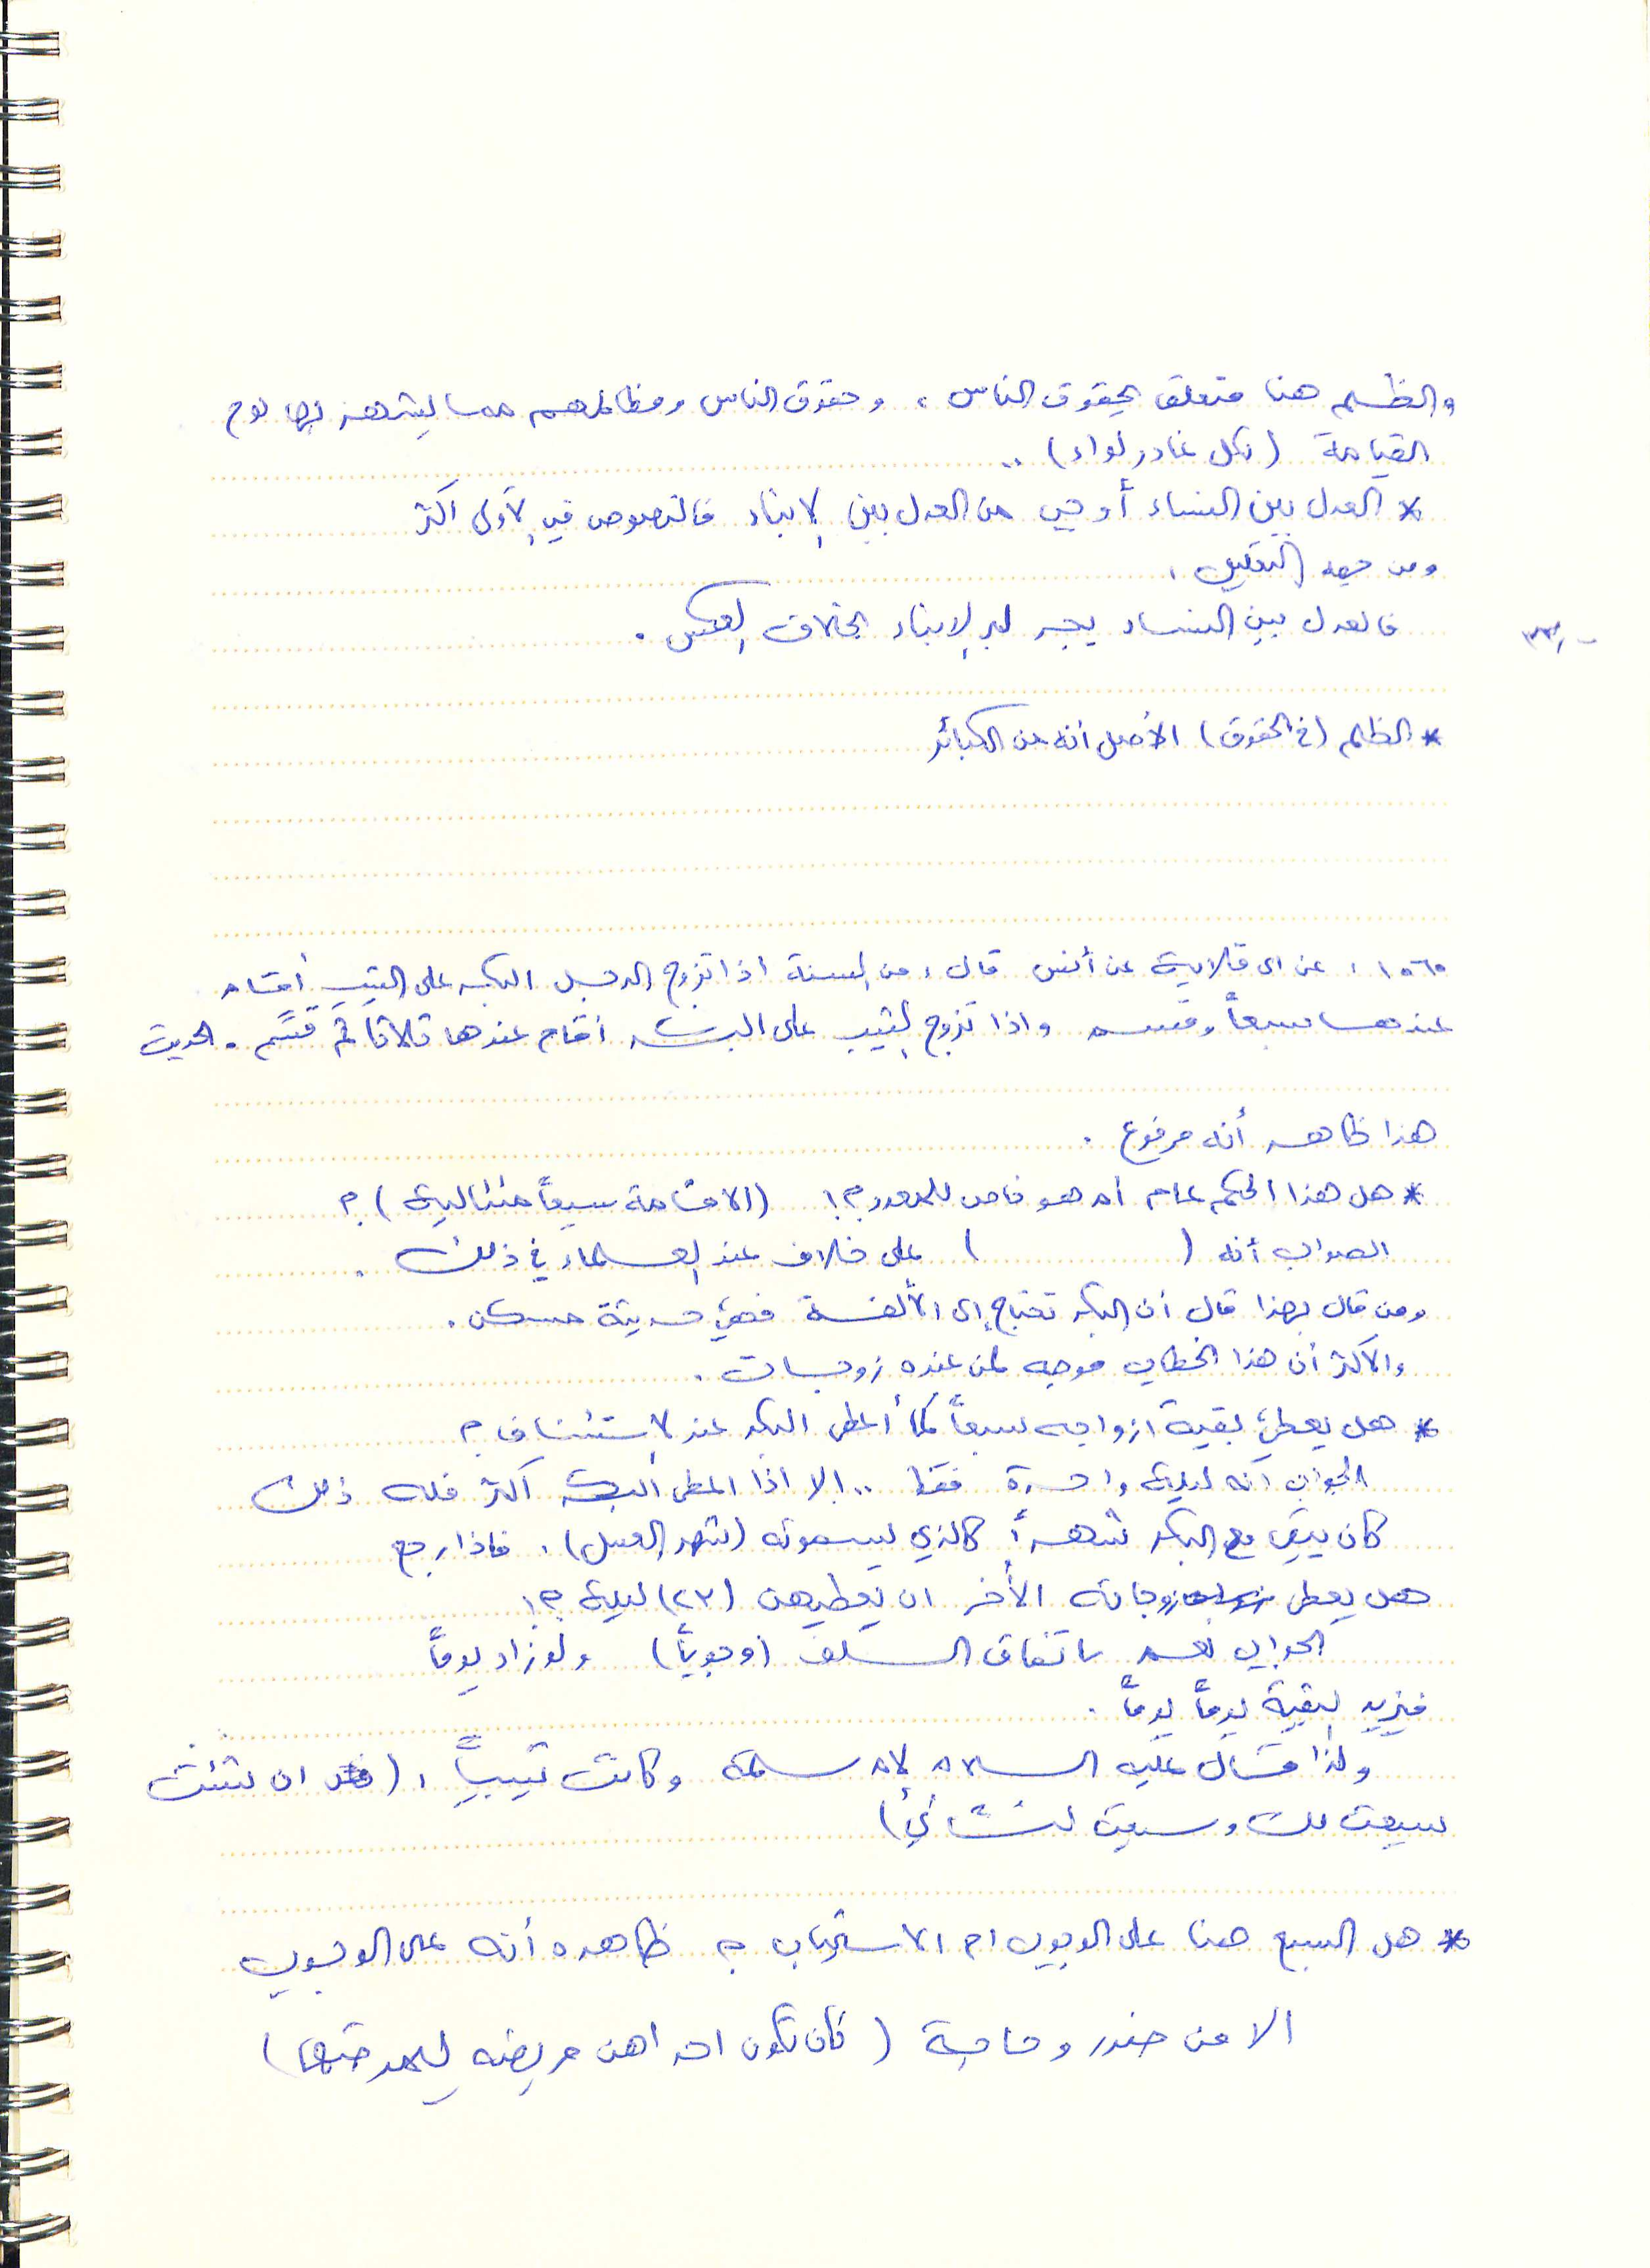 والظلم هنا متعلق بحقوق الناس ، وحقوق الناس ومظالمهم مما يشتهر بها يوم
القيامة (لكل غادر لواء) ..
* العدل بين النساء أوجب من العدل بين الابناء فالنصوص في الأولى اكثر
ومن جهة التعليل ،
فالعدل بين النساء يجر لبر الابناء بخلاف العكس .
* الظلم (في الحقوق) الأصل أنه من الكبائر
١٥٦٥ : عن ابي قلابة عن أنس قال : من السنة اذا تزوج الرجل البكر على الثيب أقام
عندها سبعاً وقسم واذا تزوج الثيب على البكر أقام عندها ثلاثاً ثم قسم . الحديث
هذا ظاهره أنه مرفوع .
* هل هذا الحكم عام أم هو خاص للمعدد ؟! (الاقامة سبعاً متتالية) ؟
الصواب أنه ( ) على خلاف عند العلماء في ذلك .
ومن قال بهذا قال أن البكر تحتاج إلى الألفة فهي حديثة مسكن .
والأكثر أن هذا الخطاب موجه لمن عنده زوجات .
* هل يعطي بقية ازواجه سبعاً كما أعطى البكر عند الاستئناف ؟
الجواب أنه ليلة واحدة فقط .. إلا اذا اعطى البكر أكثر فله ذلك
كان يبقى مع البكر شهراً كالذي يسمونه (شهر العسل) . فاذا رجع
هل يعطي زوجاته الأخر ان يعطيهن (٢٣) ليلة ؟!
الجواب نعم باتفاق السلف (وجوباً) ولو زاد يوماً
فيزيد لبقية يوماً يوماً .
ولذا قال عليه السلام لأم سلمة وكانت ثيباً : ( ان شئت
سبعت لك وسبعت لنسائي)
* هل السبع هنا على الوجوب ام الاستحباب ؟ ظاهره أنه على الوجوب
الا من ضرر وحاجة (كأن تكون احداهن مريضة )